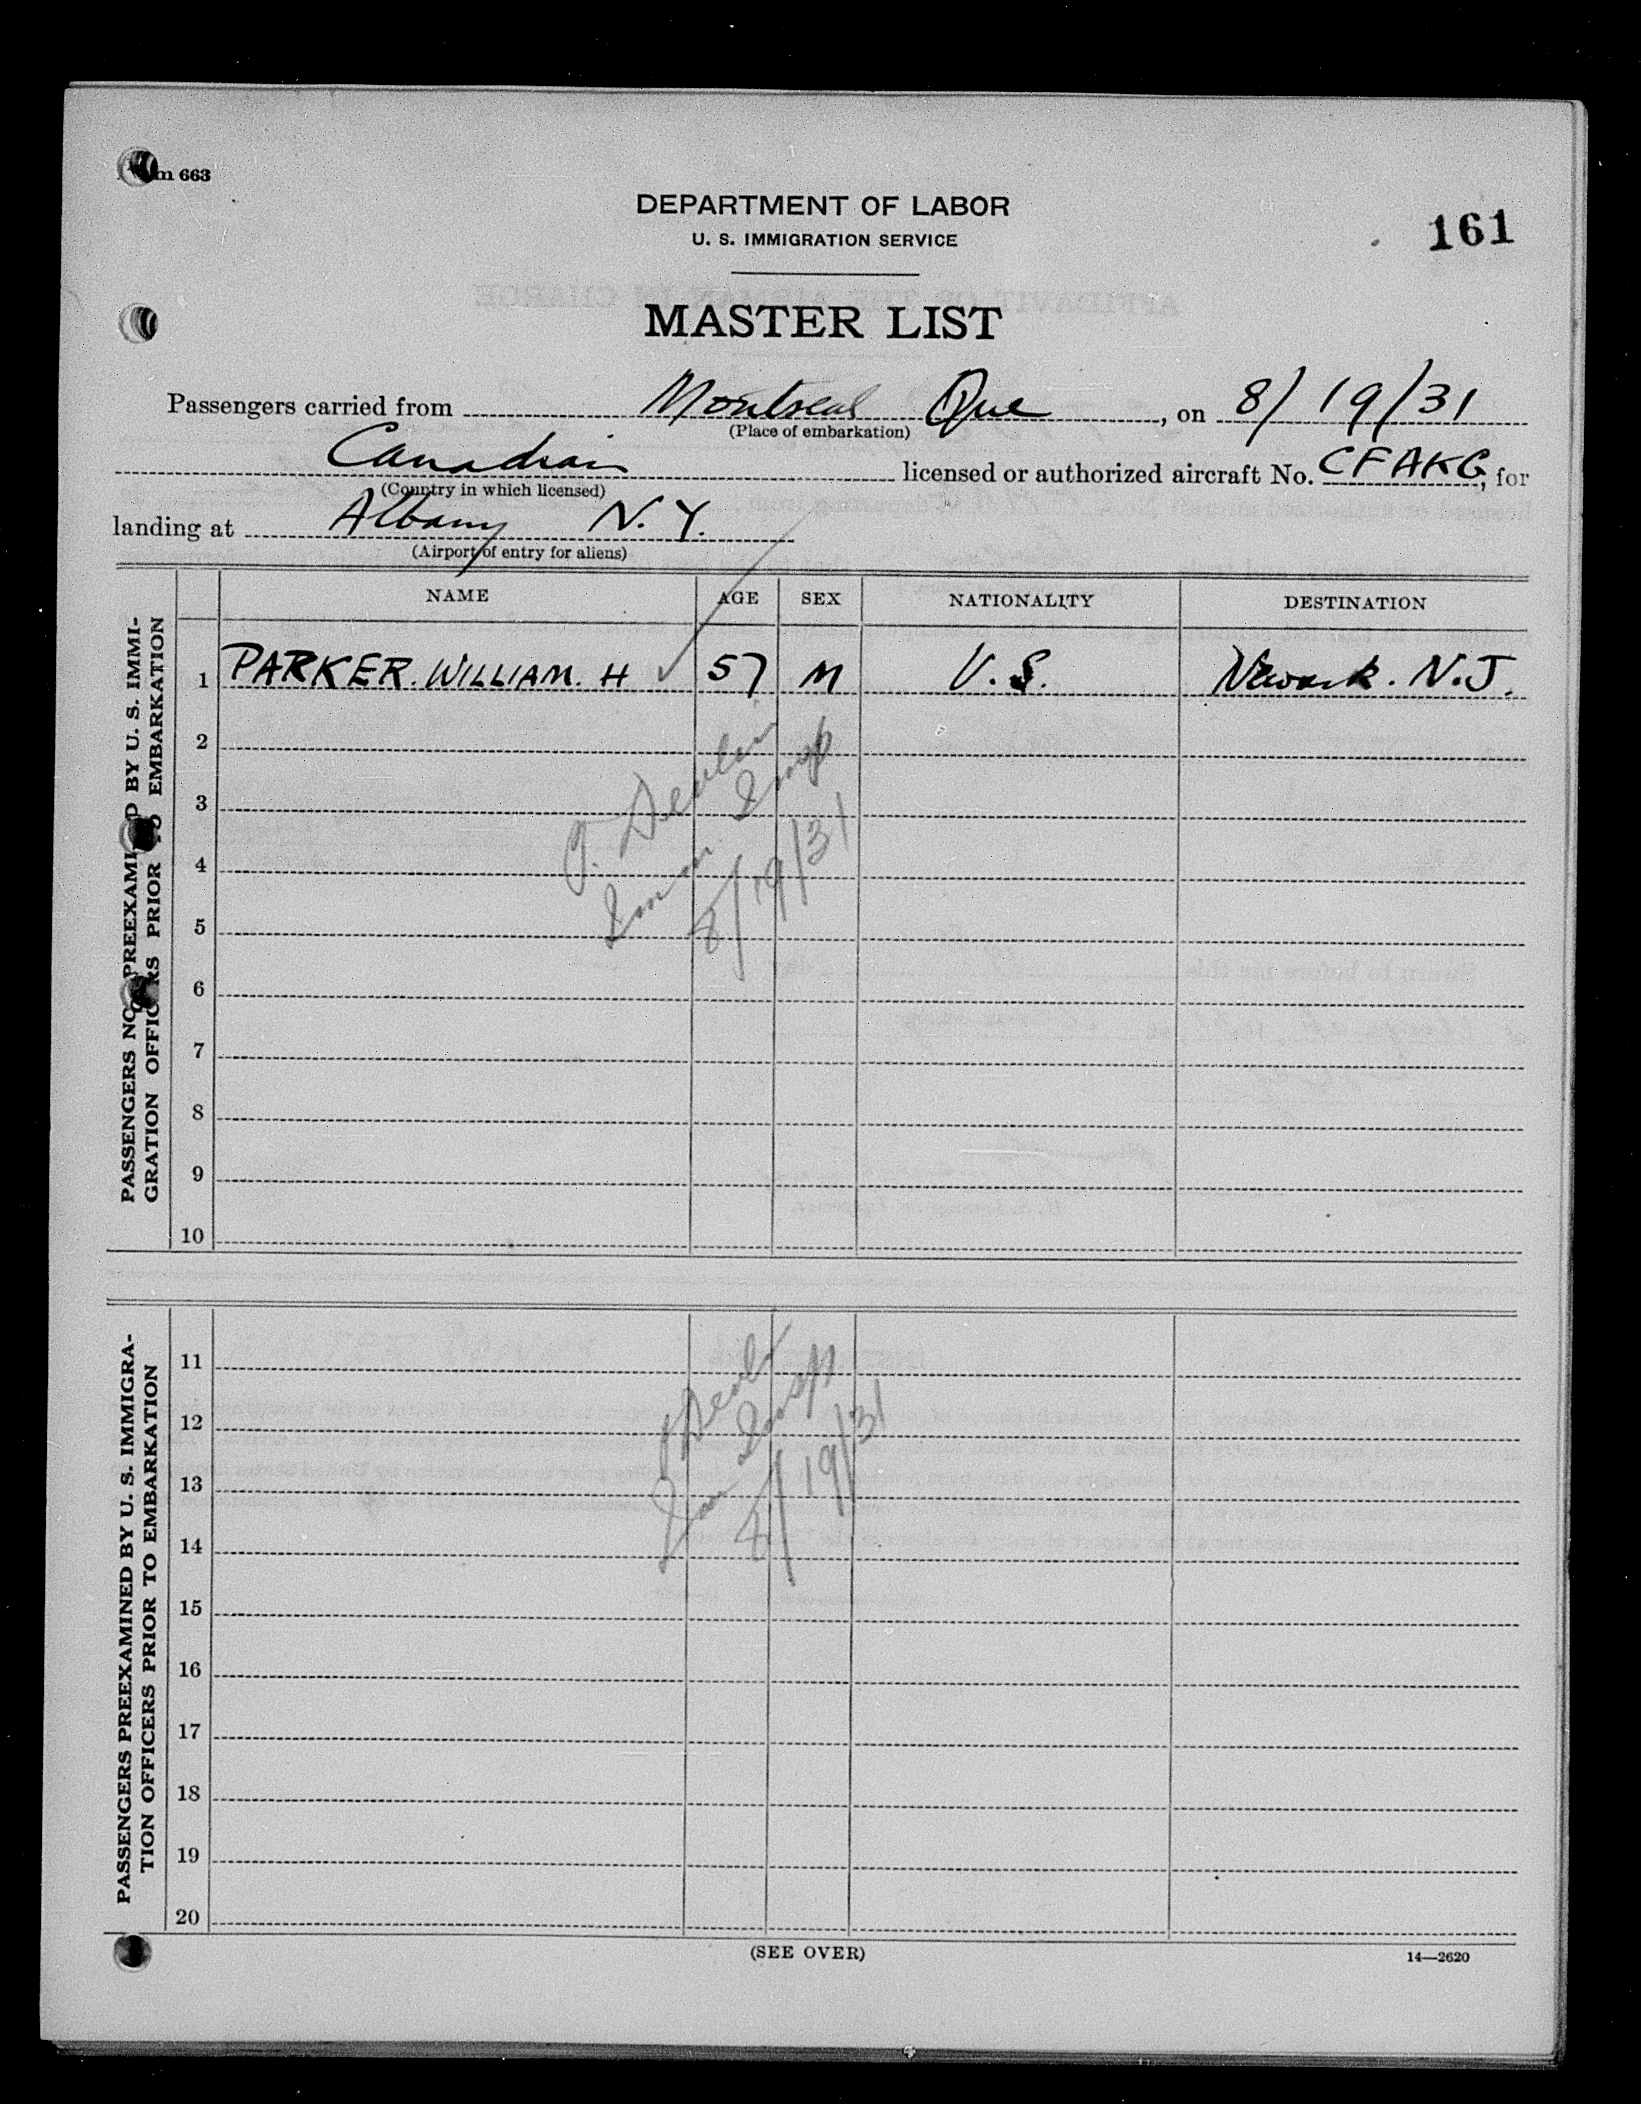 m 663
DEPARTMENT OF LABOR
U. S. IMMIGRATION SERVICE
161
MASTER LIST
Passengers carried from Montreal Que, on 8/19/31
(Place of embarkation)
Canadian licensed or authorized aircraft No. CFAKG, for
(Country in which licensed)
landing at Albany N.Y.
(Airport of entry for aliens)
NAME AGE SEX NATIONALITY DESTINATION
PASSENGERS NO PREEXAMI D BY U. S. IMMI-
GRATION OFFICERS PRIOR TO EMBARKATION
1 PARKER. WILLIAM. H ✓ 57 M U.S. Newark. N.J.
2
3
4
5
6
7
8
9
10
Devlin
Imm. Insp
8/19/31
PASSENGERS PREEXAMINED BY U. S. IMMIGRA-
TION OFFICERS PRIOR TO EMBARKATION
11
12
13
14
15
16
17
18
19
20
Imm Insp
8/19/31
(SEE OVER)
14—2620